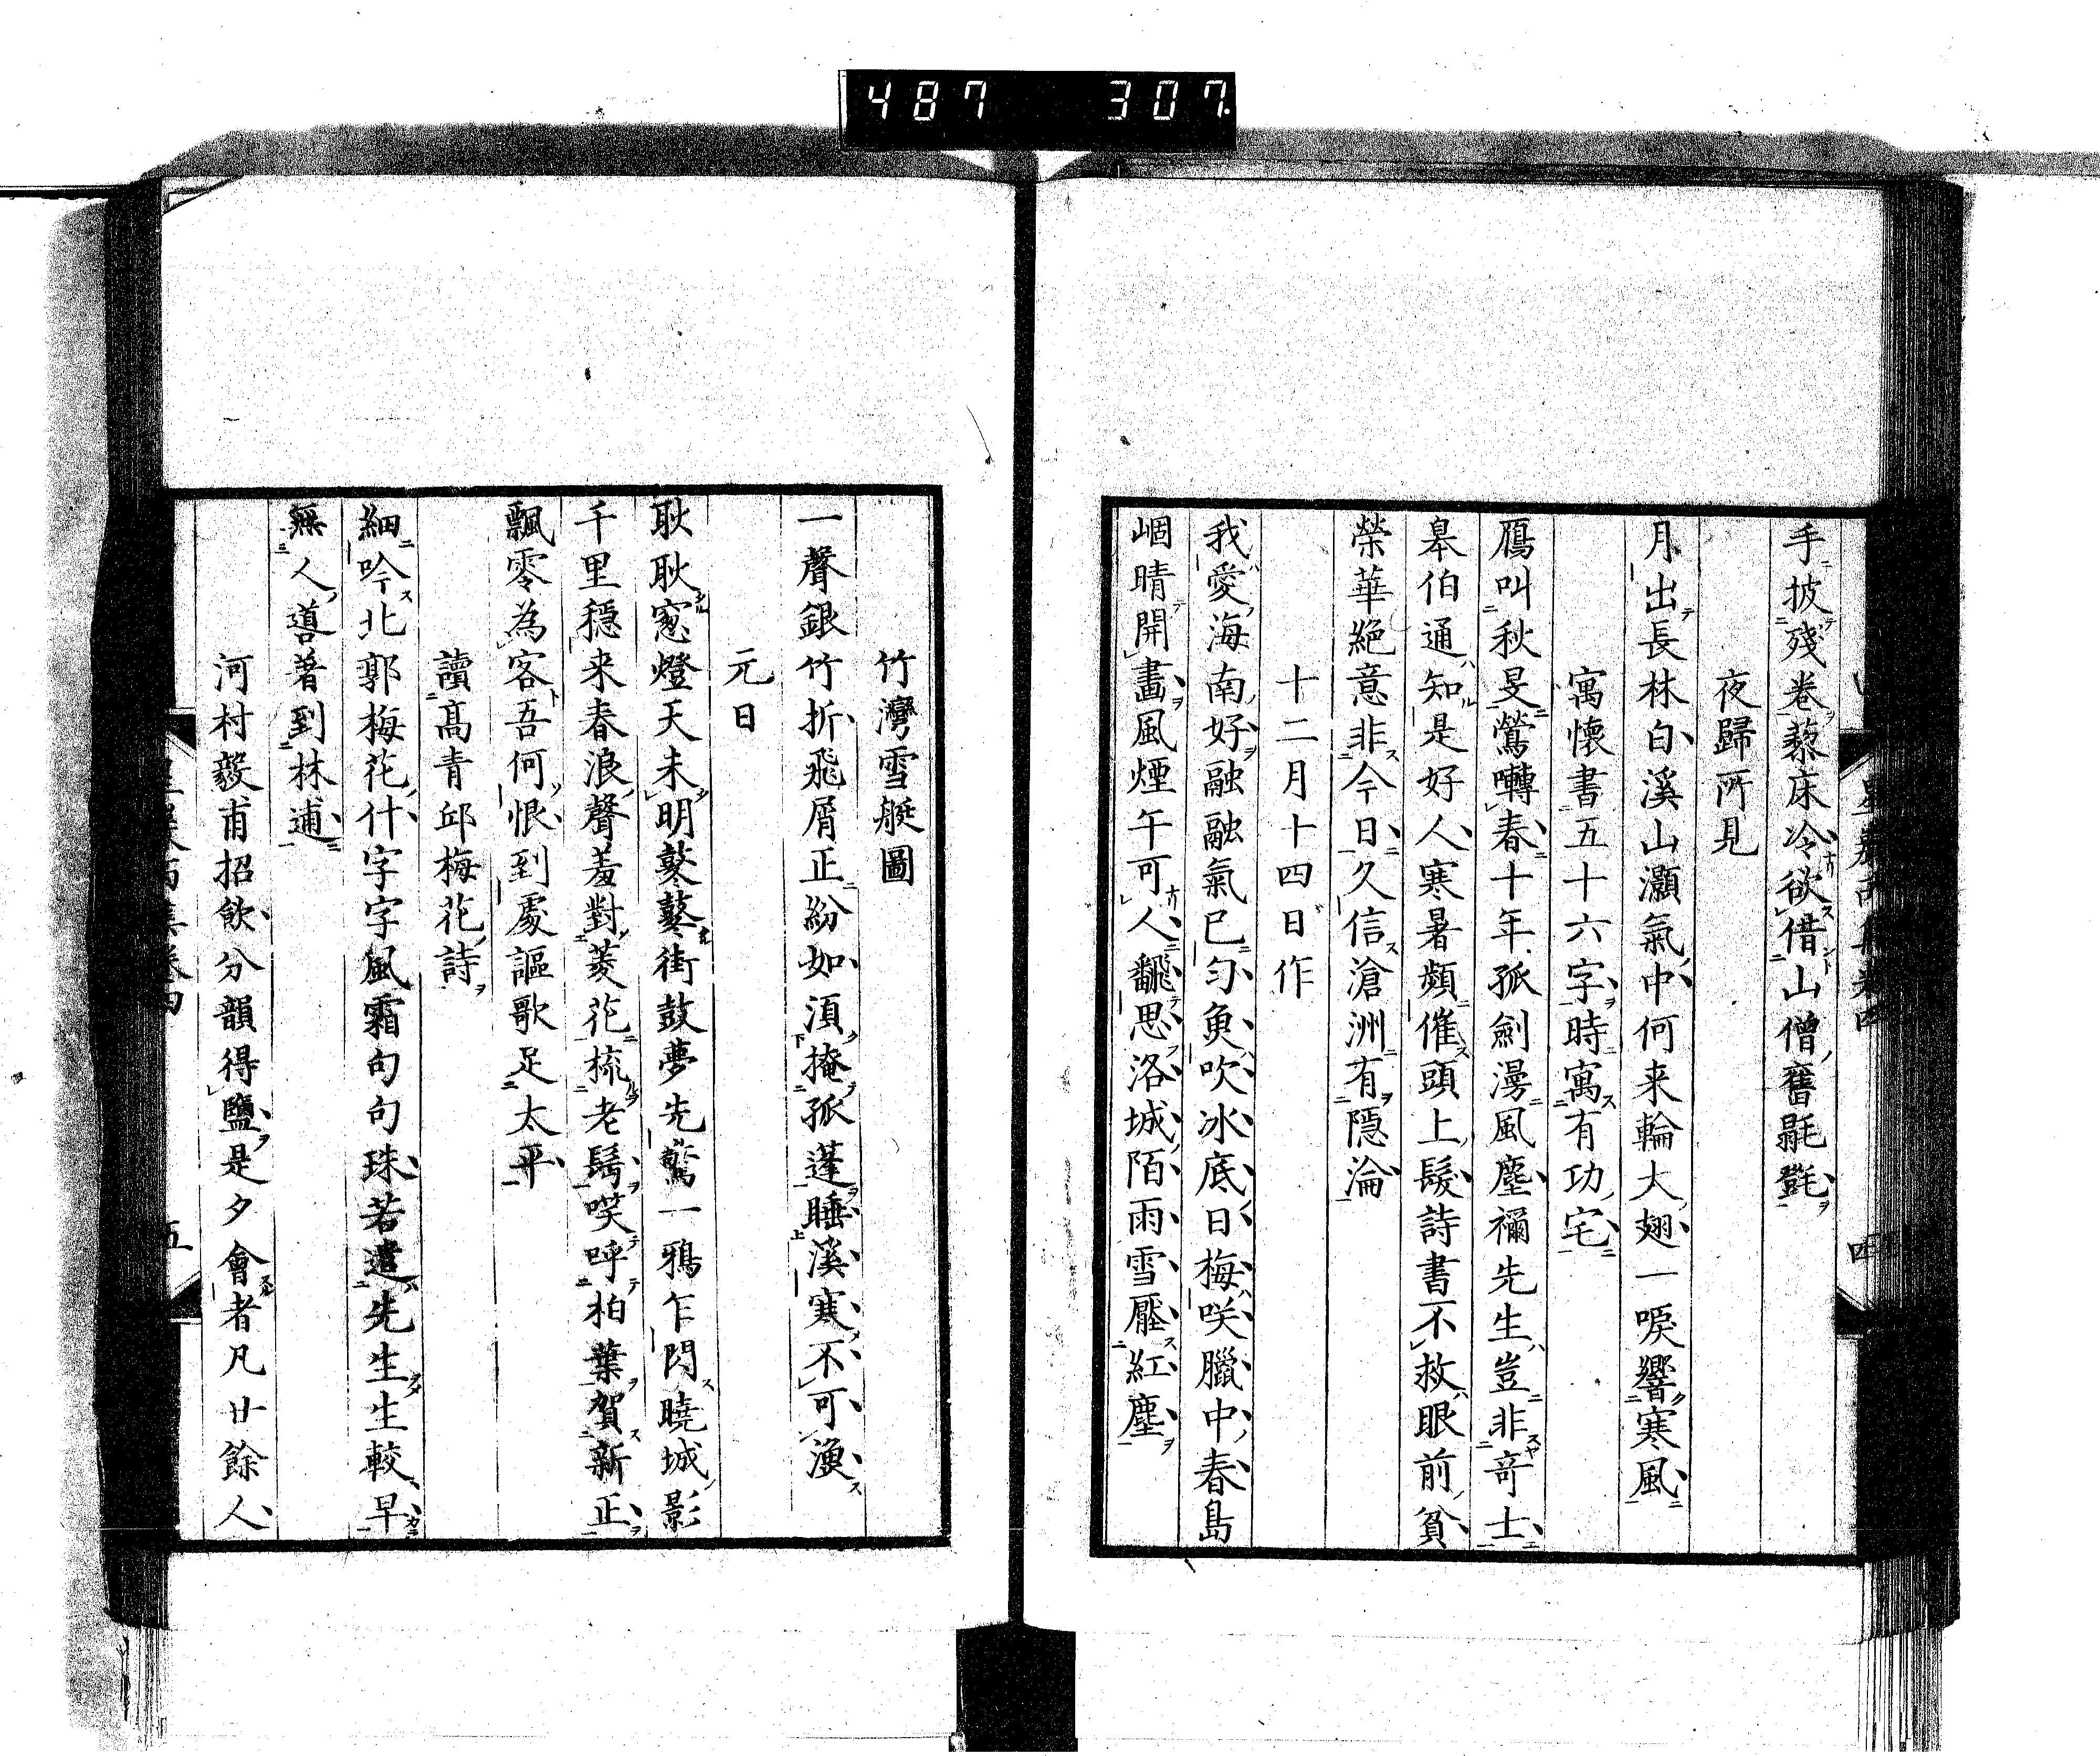 487 307.
手披殘卷藜床冷欲借山僧舊毾㲪
夜歸所見
月出長林白溪山灝氣中何来輪大翅一唳響寒風
寓懷書五十六字時寓有功宅
鴈叫秋旻鶯囀春十年孤劍漫風塵禰先生豈非竒士
皋伯通知是好人寒暑頻催頭上髮詩書不救眼前貧
榮華絶意非今日久信滄洲有隱淪
十二月十四日作
我愛海南好融融氣已匀魚吹冰底日梅咲臘中春島
崓晴開畫風煙午可人飜思洛城陌雨雪壓紅塵
四
竹灣雪艇圖
一聲銀竹折飛屑正紛如湏掩孤蓬睡溪寒不可漁
元日
耿耿窓燈天未明鼕鼕街鼓夢先驚一鴉乍閃曉城影
千里穩来春浪聲羞對菱花梳老鬂咲呼柏葉賀新正
飄零為客吾何恨到處謳歌足太平
讀髙青邱梅花詩
細吟北郭梅花什字字風霜句句珠若遣先生生較早
無人噵著到林逋
河村毅甫招飲分韻得鹽是夕會者凡廿餘人
五